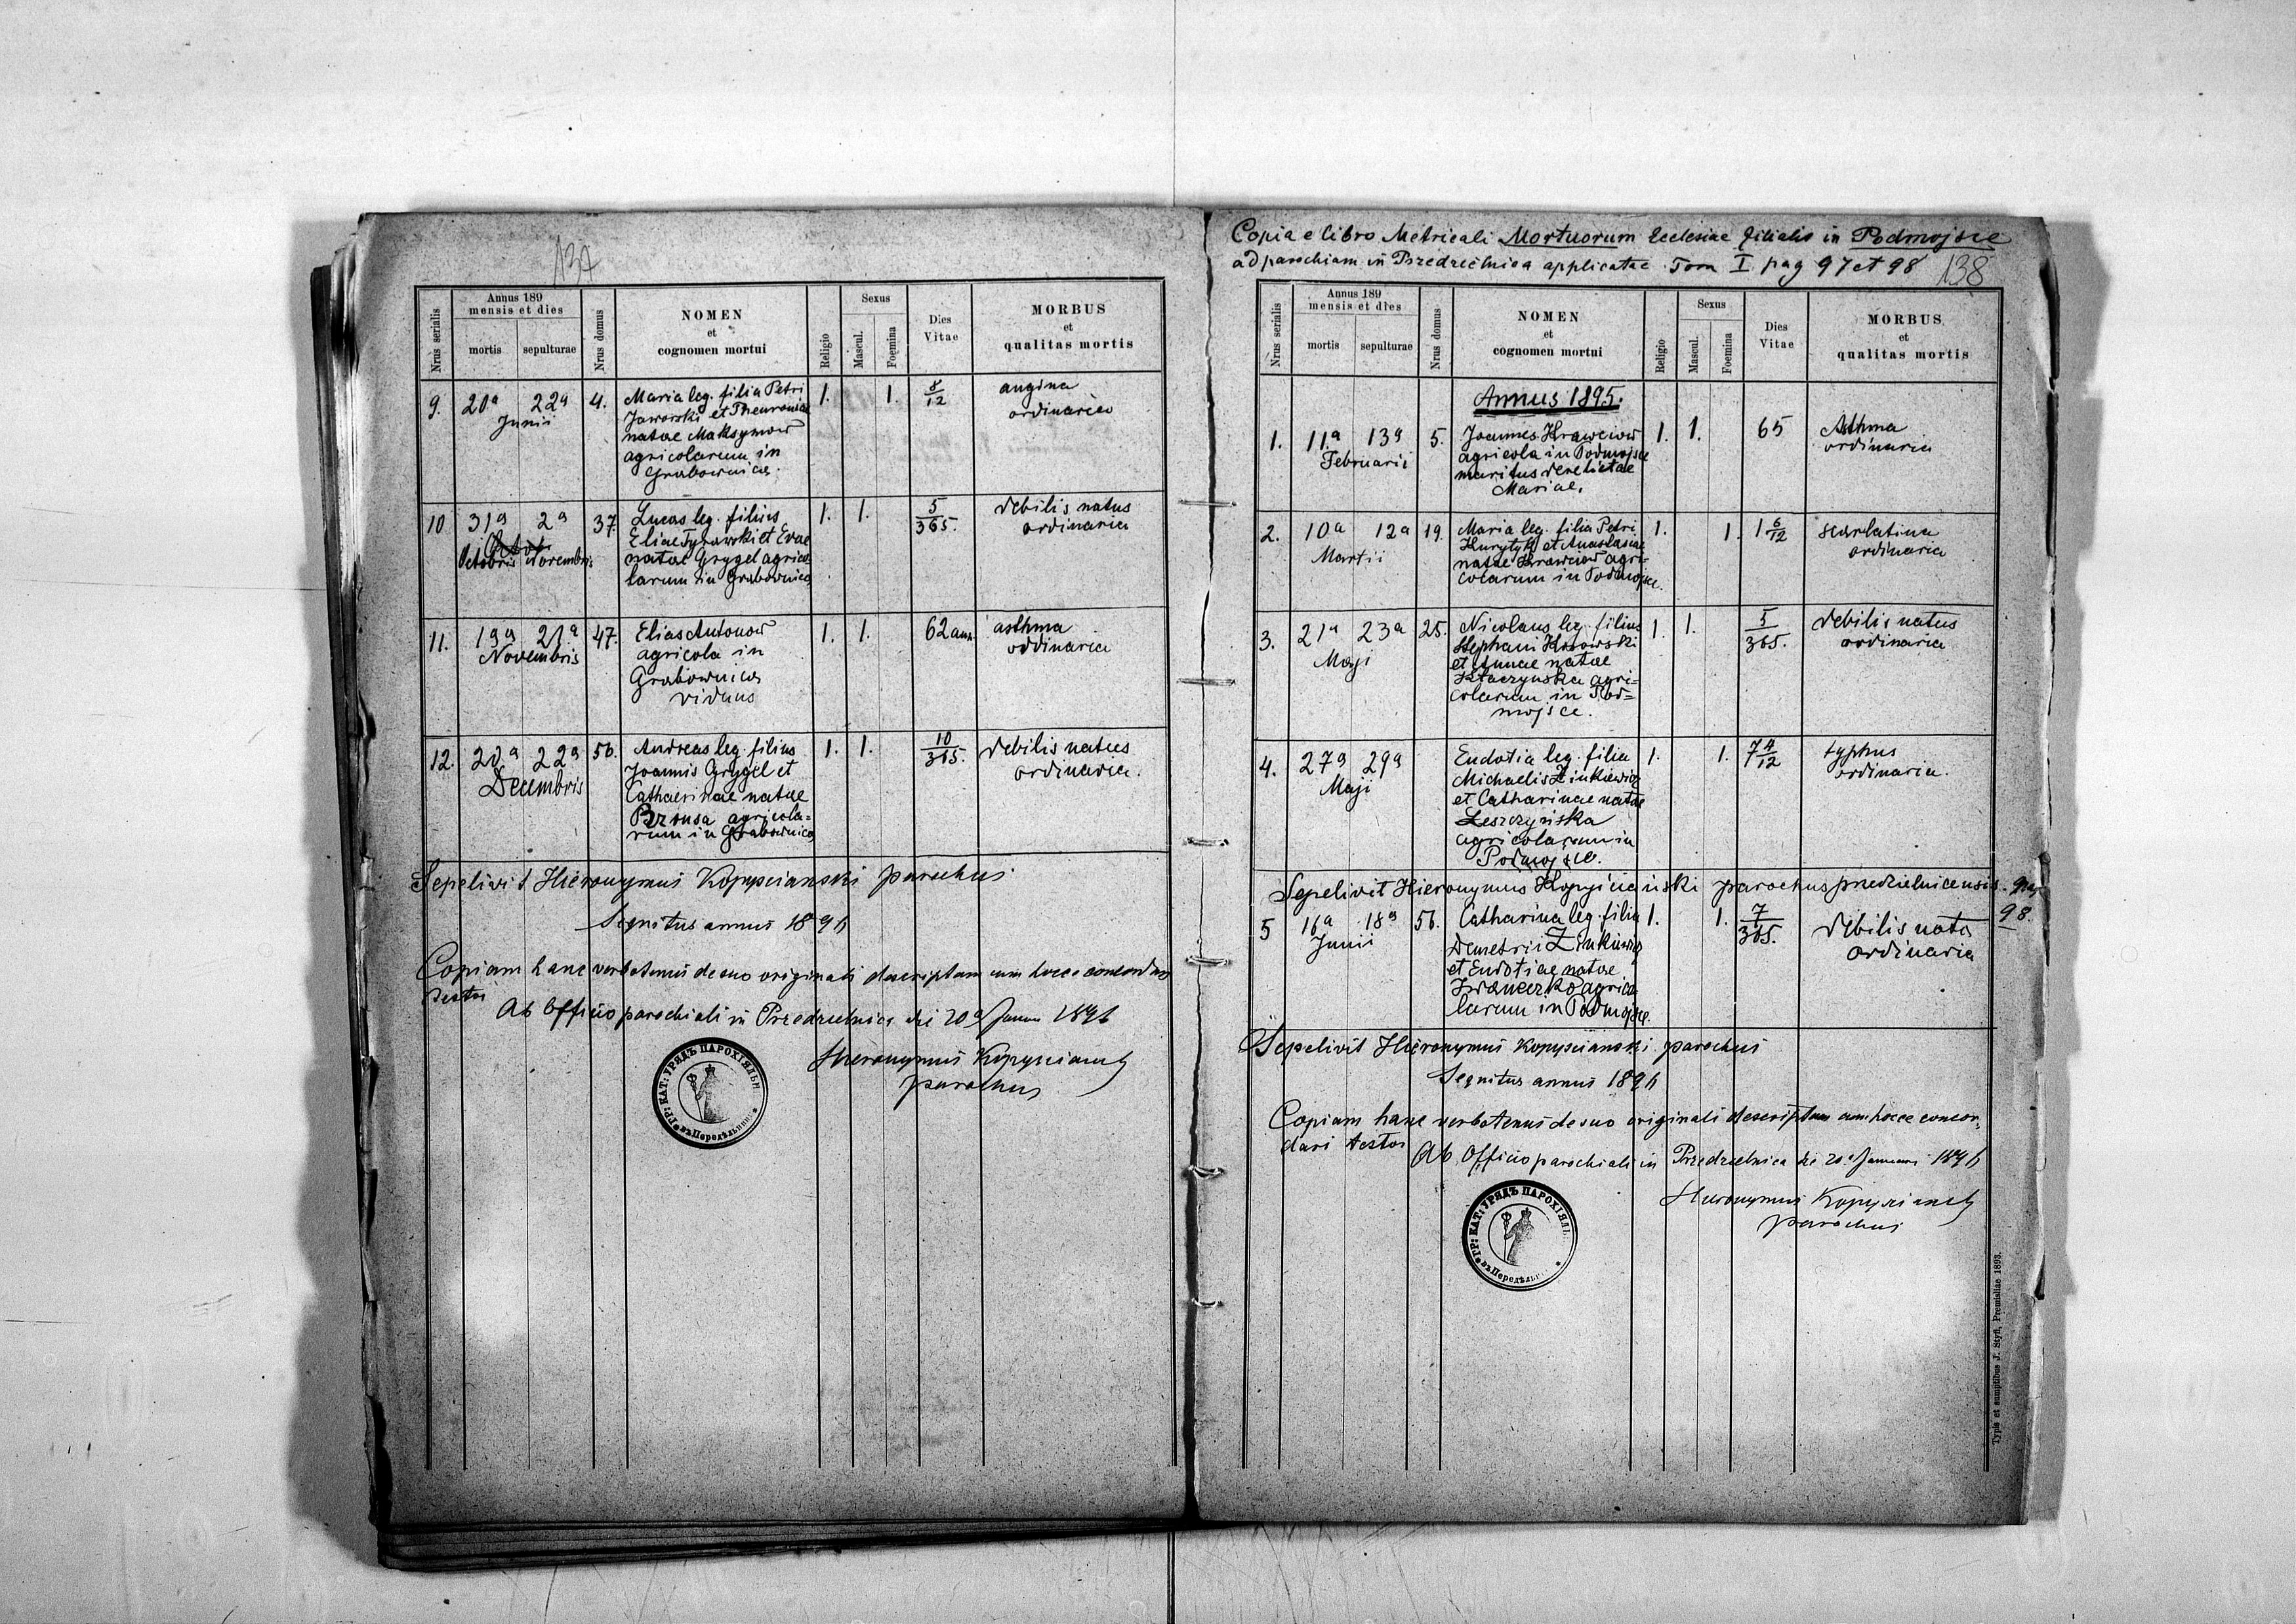 137
Nrus serialis
Annus 189
mensis et dies
mortis
sepulturae
Nrus domus
NOMEN
et
cognomen mortui
Religio
Sexus
Mascul.
Foemina
Dies
Vitae
MORBUS
et
qualitas mortis
9. 20ª 22ª 4. Maria leg. filia Petri 1. 1. 8/12 angina
Junii Jaworski et ordinaria
natae Maksymow
agricolarum in
Grabownica.
10 31ª 2ª 37. Lucas leg. filius 1. 1. 5/365. debilis natus
Octobris Novembris Eliae Tyrawski et Evae ordinaria
natae Grygel agrico
larum in Grabownica
11. 19ª 21ª 47. Elias Antonow 1. 1. 62 ann. asthma
Novembris agricola in ordinaria
Grabownica
viduus
12. 20ª 22ª 56. Andreas leg. filius 1. 1. 10/365. debilis natus
Decembris Joannis Grygel et ordinaria.
Catharinae natae
agricola=
rum in Grabownica
Sepelivit Hieronymus Kopyscianski parochus
Sequitur annus 1896
Copiam hanc verbotenus de suo originali descriptam cum hocce concordare
testor
Ab Officio parochiali in Przedzielnica die 20ª Januar 1896
Hieronymus Kopyscianski
parochus
ГР: КАТ: УРЯДЪ ПАРОХІЯЛЬН.
въ Передѣльн
Copia e libro Metricali Mortuorum Ecclesiae filialis in Podmojsce
ad parochiam in Przedzielnica applicatae Tom I. pag 97 et 98 138
Nrus serialis
Annus 189
mensis et dies
mortis
sepulturae
Nrus domus
NOMEN
et
cognomen mortui
Religio
Sexus
Mascul.
Foemina
Dies
Vitae
MORBUS
et
qualitas mortis
Annus 1895.
1. 11ª 13ª 5. Joannes Krawciow 1. 1. 65 Asthma
Februarii agricola in Podmojsce ordinaria
maritus derelictae
Mariae.
2. 10ª 12ª 19. Maria leg. filia Petri 1. 1. 1 6/12 scarlatina
Martii et Anastasiae ordinaria
natae Krawciow agri-
colarum in Podmojsce.
3. 21ª 23ª 25. Nicolaus leg. filius 1. 1. 5/365. debilis natus
Maji Stephani Kossowski ordinaria
et Annae natae
agri=
colarum in Pod=
mojsce.
4. 27ª 29ª Eudotia leg. filia 1. 1. 7 4/12 typhus
Maji Michaelis Zinkiewicz ordinaria.
et Catharinae natae
Leszczyńska
agricolarum in
Podmojsce.
Sepelivit Hieronymus Kopyścianski parochus przedzielnicensis. Pag
98.
5 16ª 18ª 56. Catharina leg. filia 1. 1. 7/365. debilis nata
Junii Demetrii Zinkiewicz ordinaria
et Eudotiae natae
agrico
larum in Podmojsce.
Sepelivit Hieronymus Kopyscianski parochus
Sequitur annus 1896
Copiam hanc verbotenus de suo originali descriptam cum hocce concor-
dari testor
Ab Officio parochiali in Przedzielnica die 20ª Januari 1896
Hieronymus Kopyscianski
parochus
ГР: КАТ: УРЯДЪ ПАРОХІЯЛЬ.
въ Передѣльн
Typis et sumptibus J. Styfi, Premisliae 1893.